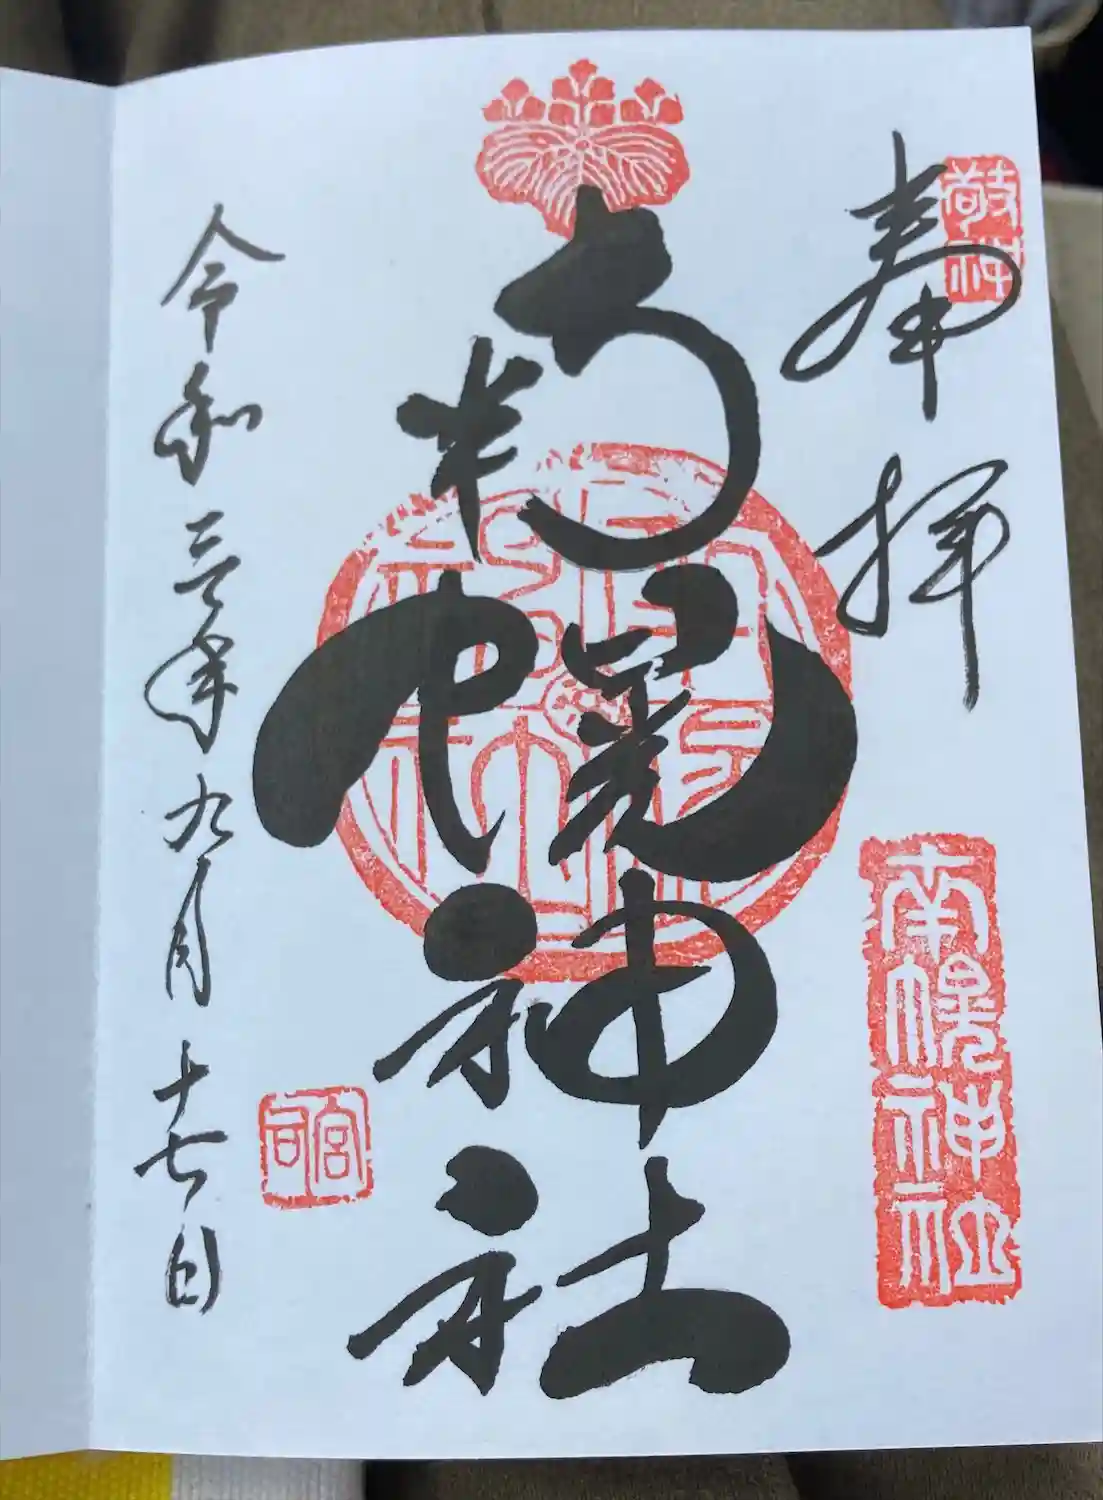 奉拝
敬神
南幌神社
南幌神社
令和三年九月十七日
宮司